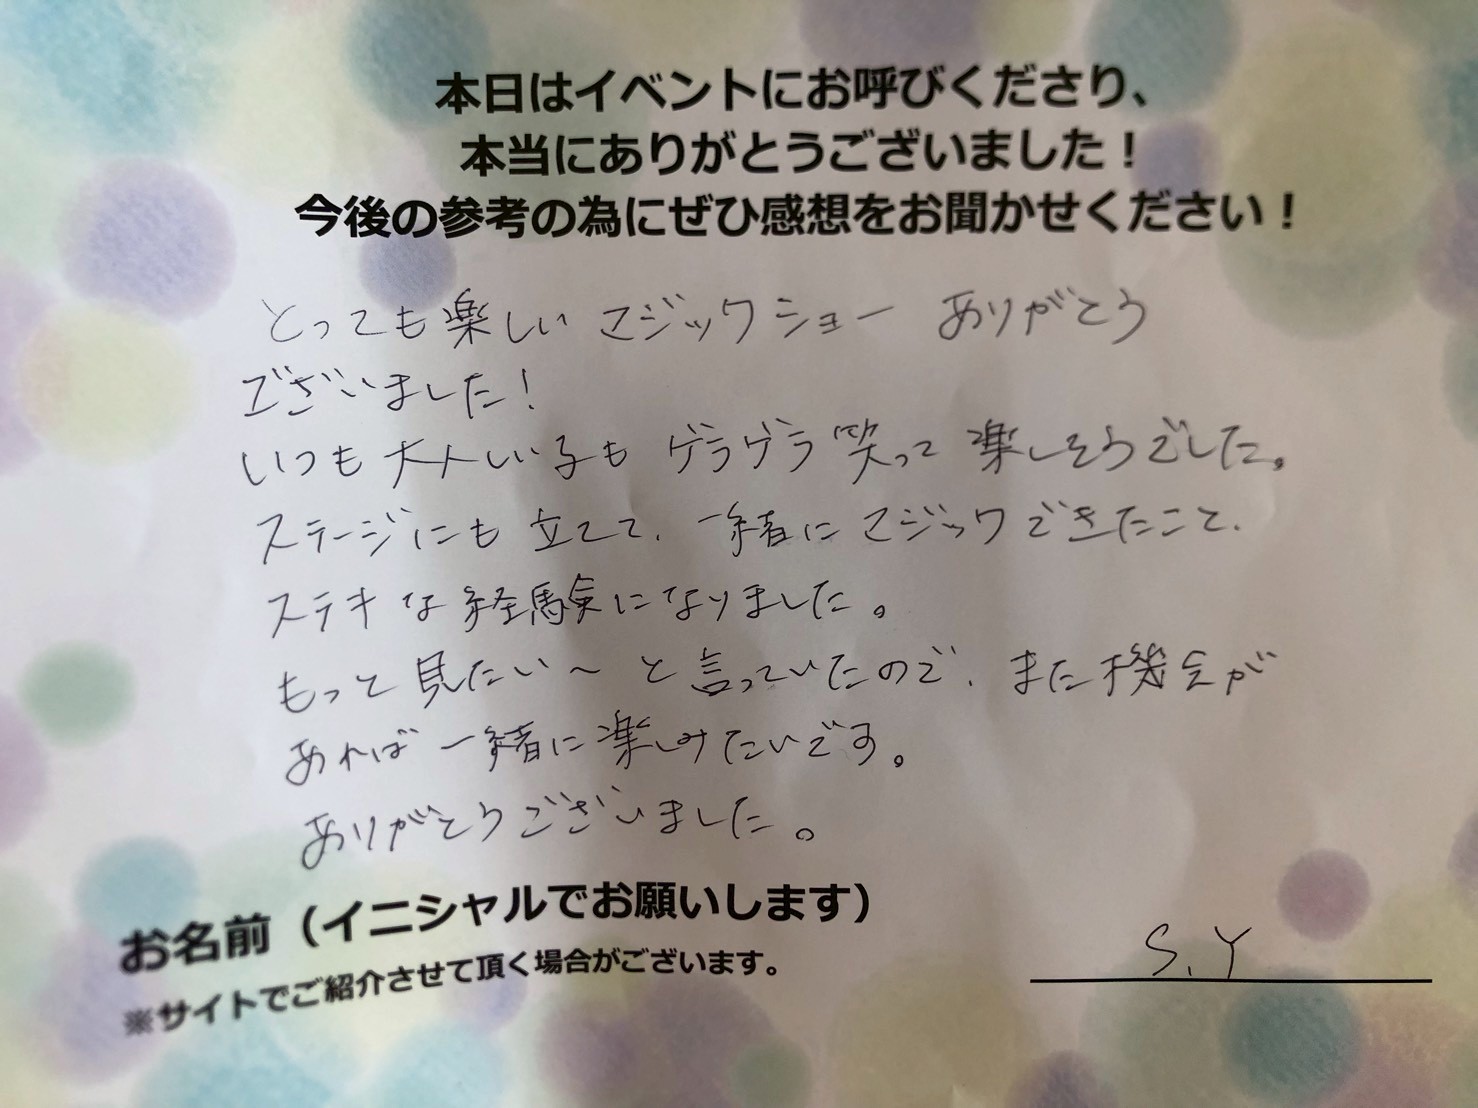 本日はイベントにお呼びくださり、
本当にありがとうございました！
今後の参考の為にぜひ感想をお聞かせください！
とっても楽しいマジックショー ありがとう
ございました！
いつも大人しい子も ゲラゲラ笑って楽しそうでした。
ステージにも立てて、一緒にマジックできたこと、
ステキな経験になりました。
もっと見たい〜と言っていたので、また機会が
あれば一緒に楽しみたいです。
ありがとうございました。
お名前（イニシャルでお願いします）
S.Y
※サイトでご紹介させて頂く場合がございます。